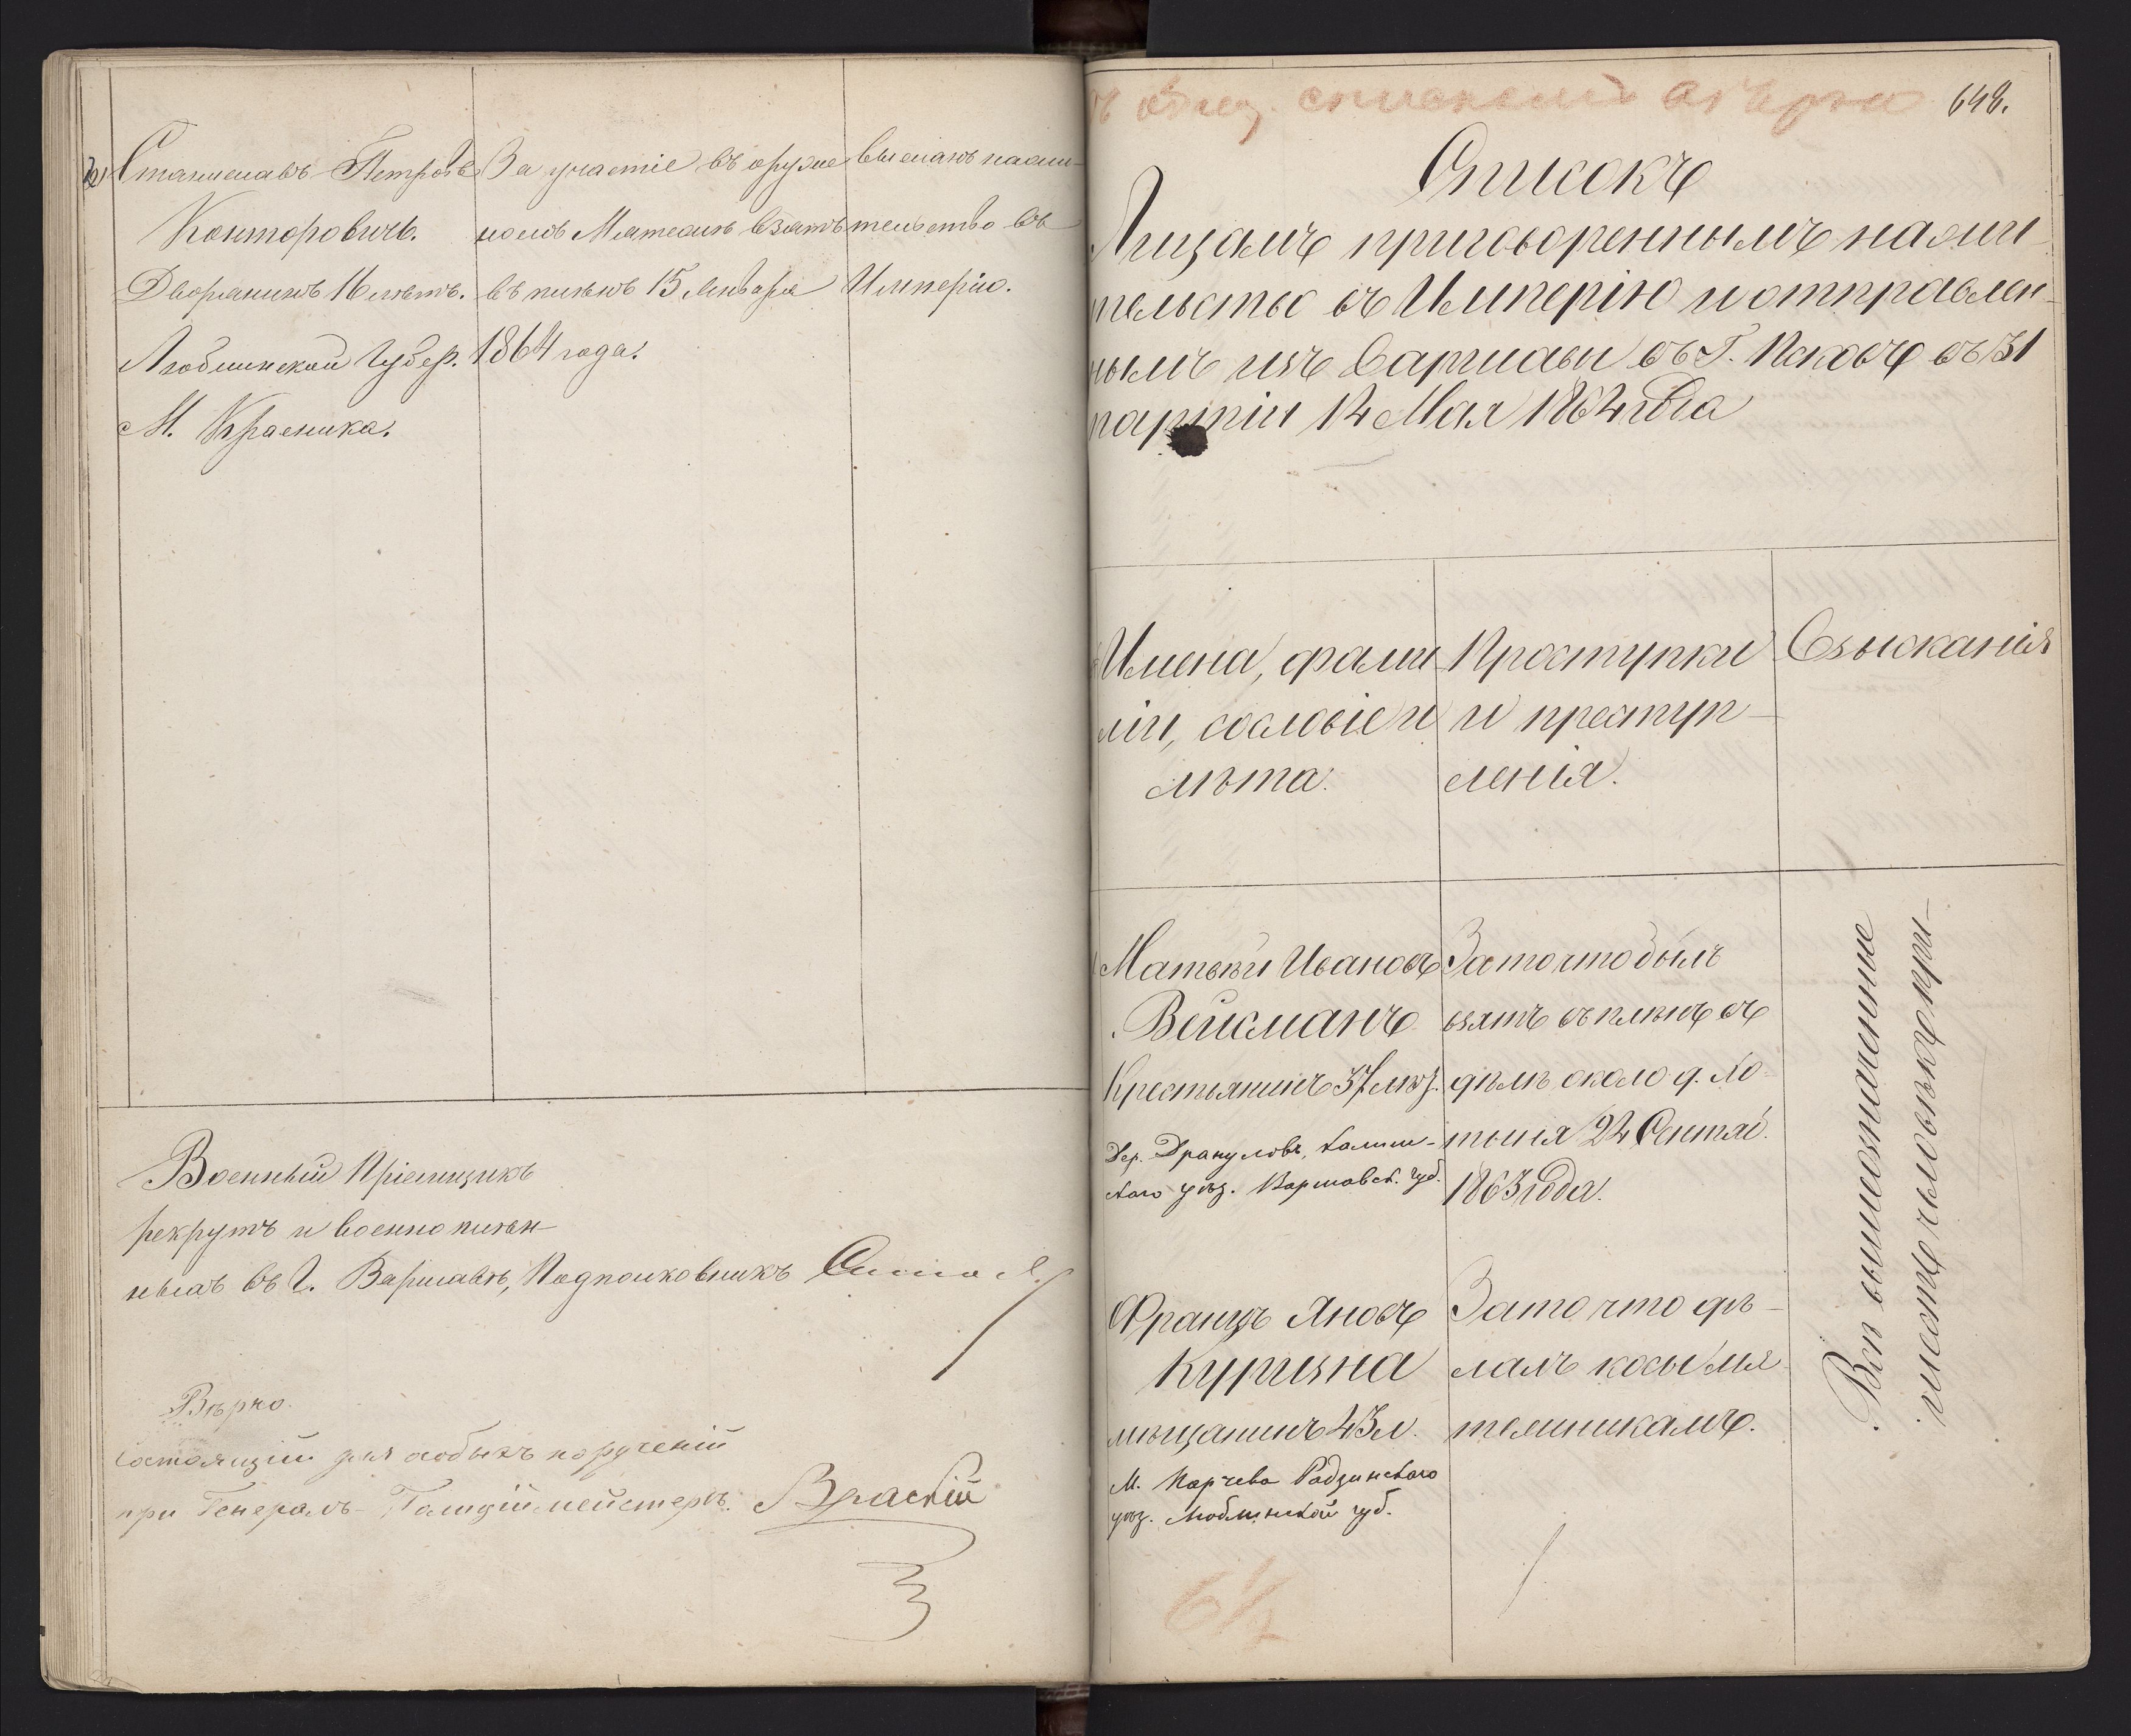 Станиславъ Петровъ
Конторовичъ.
Дворянинъ 16 лѣтъ.
Люблинской Губер.
М. Красника.
За участіе въ оруже
номъ Мятежѣ взятъ
въ плѣнъ 15 Января
1864 года.
высланъ на жи-
тельство въ
Имперію.
Военный Пріемщикъ
рекрутъ и военно плѣн-
ныхъ въ Г. Варшавѣ, Подполковникъ
Вѣрно.
Состоящій для особыхъ порученій
при Генералъ-Полицiймейстерѣ. Враскій
648.
Списокъ
Лицамъ приговореннымъ на жи-
тельство въ Имперію и отправлен-
нымъ изъ Варшавы въ Г. Псковъ въ 31
партіи 12 Мая 1864 года
Имена, фами-
ліи, сословіе и
лѣта.
Проступки
и преступ-
ленія.
Взысканія
Матвѣй Ивановъ
Вейсманъ
Крестьянинъ 37 лѣтъ.
Дер. Драгуловъ, Калиш-
скаго уѣз. Варшавск. губ.
За то что былъ
взятъ въ плѣнъ въ
дѣлѣ около д. Хо-
тыня 22 Сентяб.
1863 года.
Францъ Яновъ
Куризна
мѣщанинъ 43 л.
М. Парчева Радзинскаго
уѣз. Люблинской губ.
За то что дѣ-
лалъ косы мя-
тежникамъ.
Всѣ вышеозначенные
шесть человѣкъ при-
6 1/2